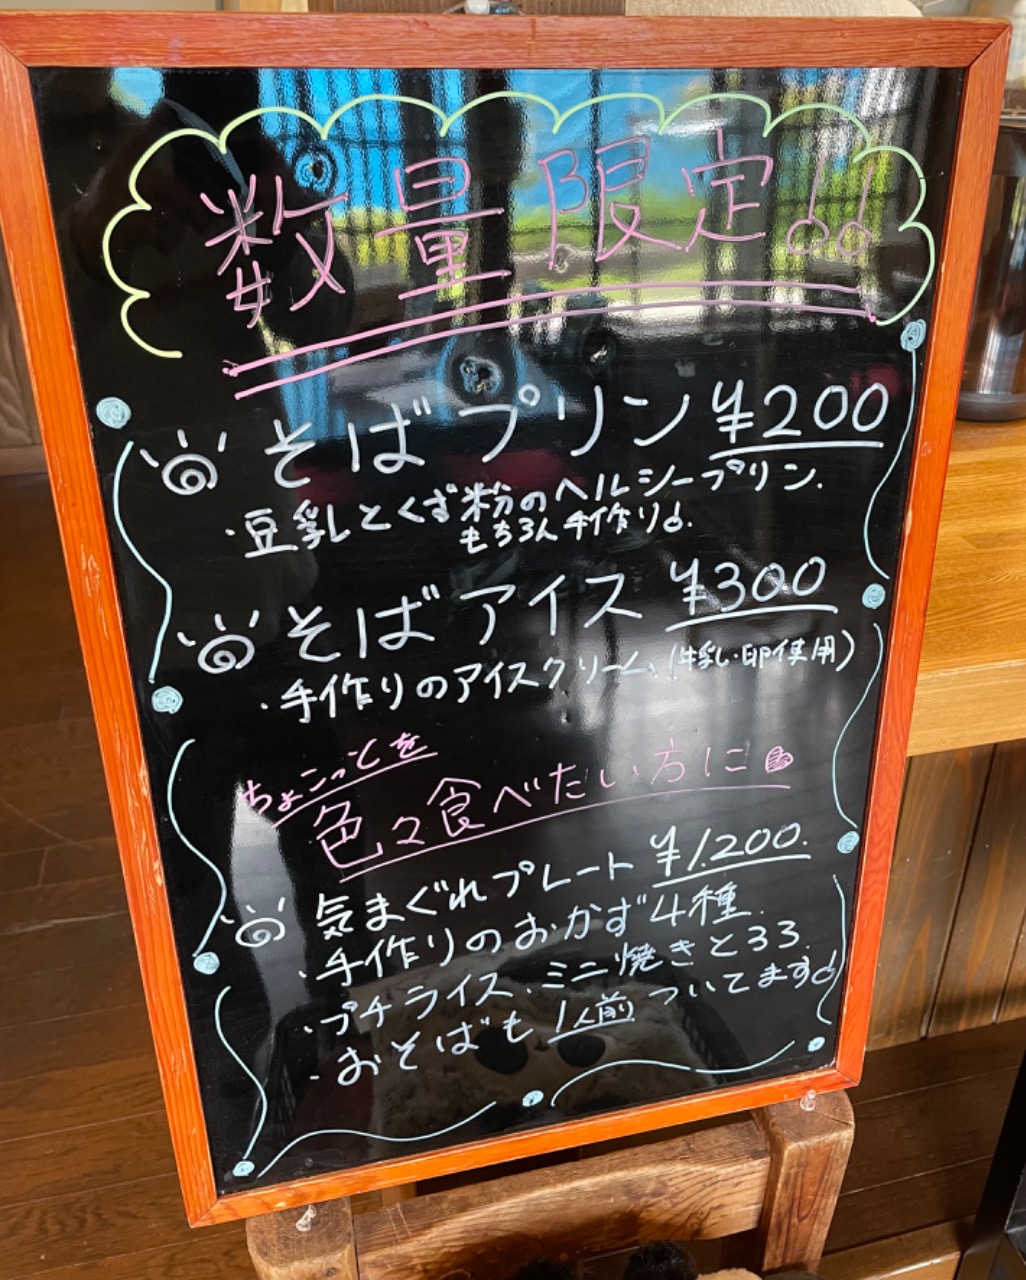 数量限定!!
そばプリン ¥200
・豆乳とくず粉のヘルシープリン.
もちろん手作り!.
そばアイス ¥300
・手作りのアイスクリーム.(牛乳・卵使用)
ちょこっとを
色々食べたい方に
気まぐれプレート ¥1.200.
・手作りのおかず4種.
・プチライス、ミニ焼きとろろ.
・おそばも1人前ついてます!